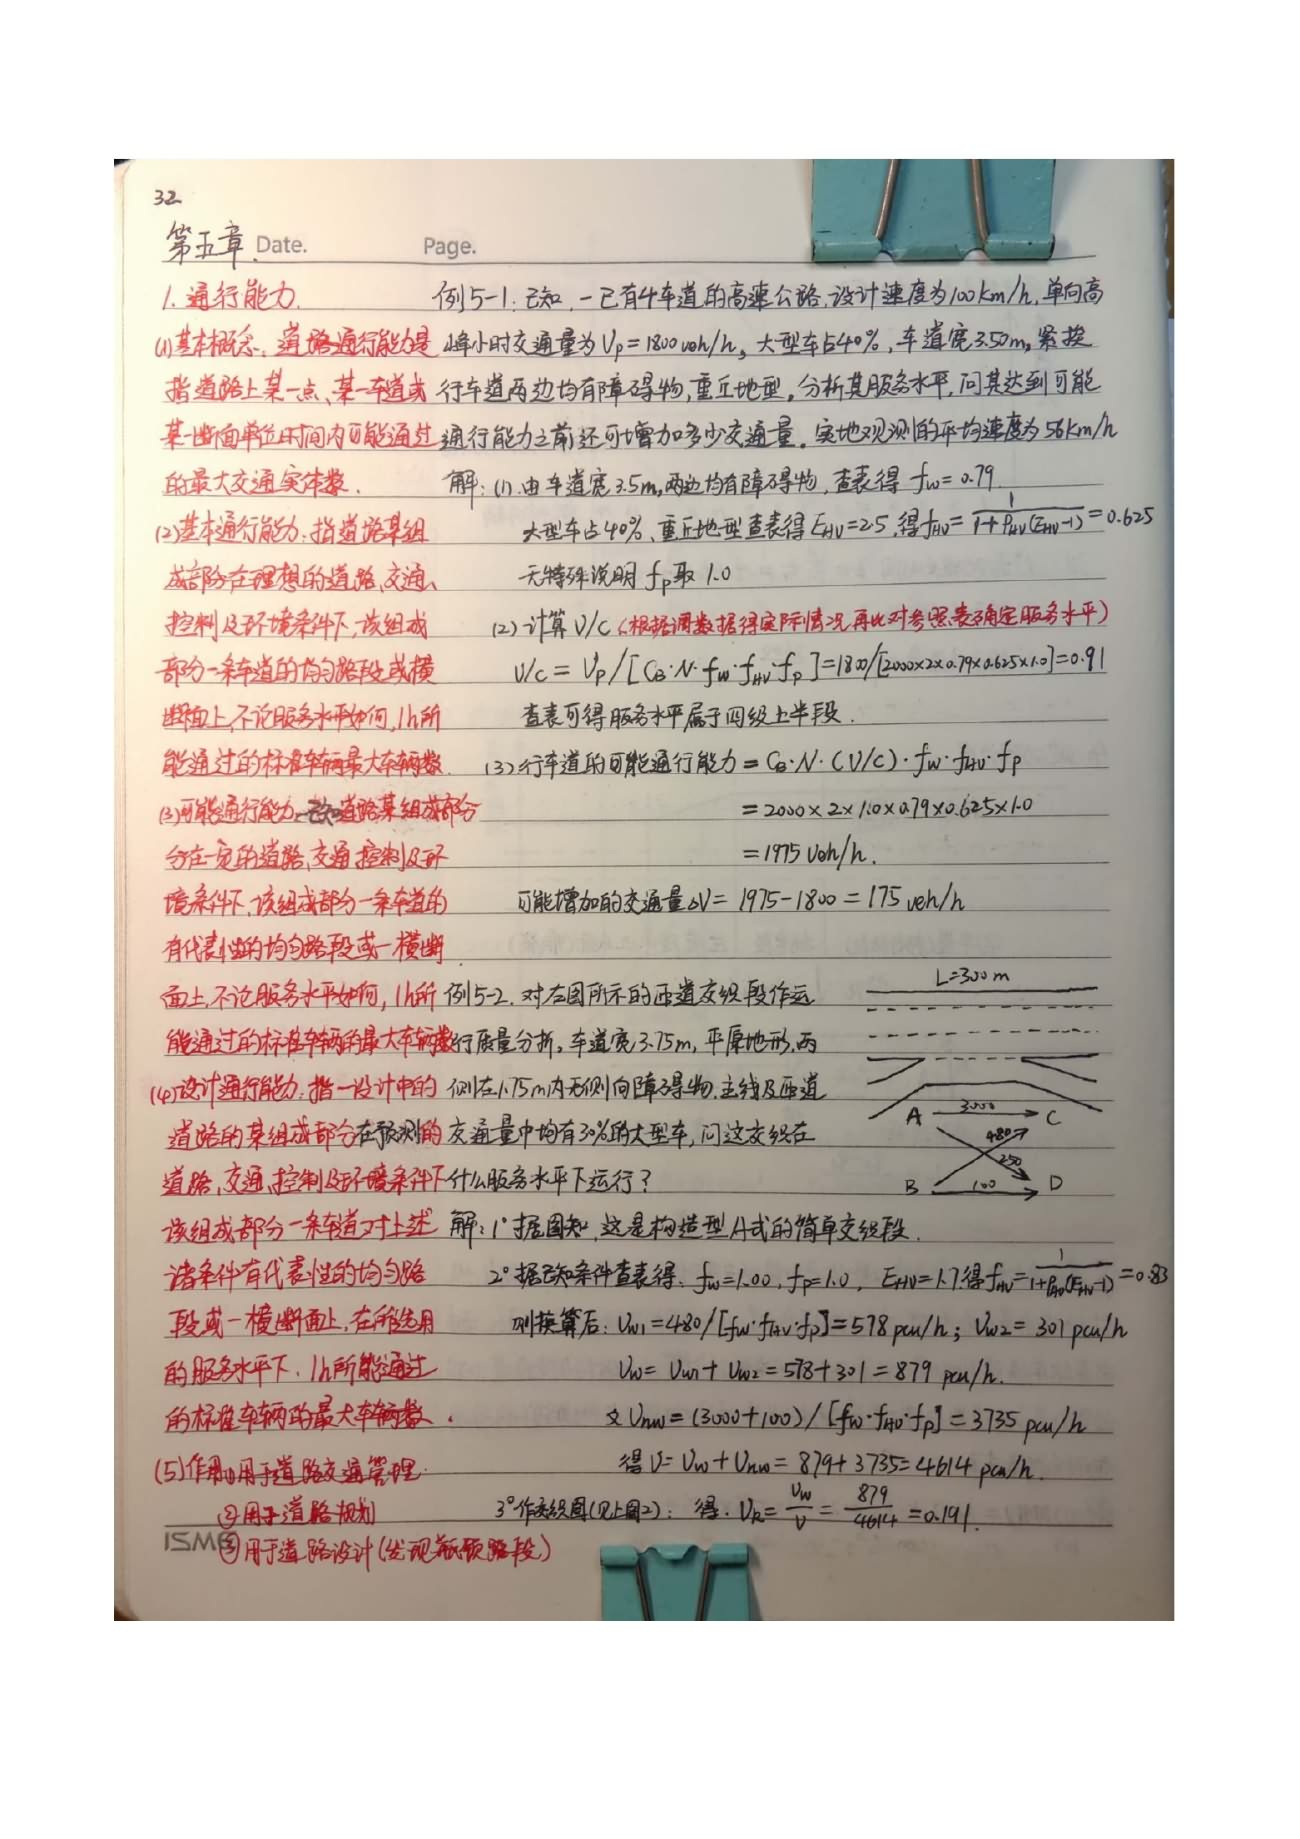 32
第五章 Date. Page.
1. 通行能力.
(1)基本概念. 道路通行能力是
指道路上某一点、某一车道或
某一断面单位时间内可能通过
的最大交通实体数.
(2)基本通行能力: 指道路某组
成部分在理想的道路、交通、
控制及环境条件下, 该组成
部分一条车道的均匀路段或横
断面上, 不论服务水平如何, 1h所
能通过的标准车辆最大车辆数.
(3)可能通行能力: 已知道路某组成部分
分在一定的道路、交通控制及环
境条件下, 该组成部分一条车道的
有代表性的均匀路段或一横断
面上, 不论服务水平如何, 1h所
能通过的标准车辆的最大车辆数
(4)设计通行能力: 指一设计中的
道路的某组成部分在预测的
道路、交通、控制及环境条件下
该组成部分一条车道对上述
诸条件有代表性的均匀路
段或一横断面上, 在所选用
的服务水平下, 1h所能通过
的标准车辆的最大车辆数.
(5)作用①用于道路交通管理
②用于道路规划
③用于道路设计(发现瓶颈路段)
例5-1: 已知, 一已有4车道的高速公路, 设计速度为100km/h, 单向高
峰小时交通量为Vp=1800veh/h, 大型车占40%, 车道宽3.50m, 紧挨
行车道两边均有障碍物, 重丘地型. 分析其服务水平, 问其达到可能
通行能力之前还可增加多少交通量. 实地观测的平均速度为56km/h
解: (1).由车道宽3.5m, 两边均有障碍物, 查表得 fw=0.79
大型车占40%、重丘地型查表得EHV=2.5, 得fHV=1/(1+PHV(EHV-1))=0.625
无特殊说明 fp取1.0
(2)计算V/C (根据调数据得实际情况, 再比对参照表确定服务水平)
V/C = Vp/[CB·N·fw·fHV·fp]=1800/[2000×2×0.79×0.625×1.0]=0.91
查表可得服务水平属于四级上半段.
(3)行车道的可能通行能力=CB·N·(V/C)·fw·fHV·fp
=2000×2×1.0×0.79×0.625×1.0
=1975 veh/h.
可能增加的交通量ΔV= 1975-1800=175 veh/h
例5-2. 对左图所示的匝道交织段作运
行质量分析, 车道宽3.75m, 平原地形, 两
侧在1.75m内无侧向障碍物. 主线及匝道
交通量中均有30%的大型车, 问这交织在
什么服务水平下运行?
L=300m
A 3000 C
480
250
B 100 D
解: 1° 据图知, 这是构造型A式的简单交织段.
2° 据已知条件查表得, fw=1.00, fp=1.0, EHV=1.7, 得fHV=1/(1+PHV(EHV-1))=0.83
则换算后: Vw1=480/[fw·fHV·fp]=578 pcu/h; Vw2=301 pcu/h
Vw=Vw1+Vw2=578+301=879 pcu/h.
又Vnw=(3000+100)/[fw·fHV·fp]=3735 pcu/h
得V=Vw+Vnw=879+3735=4614 pcu/h.
3° 作交织图(见上图2): 得. VR=Vw/V=879/4614=0.191.